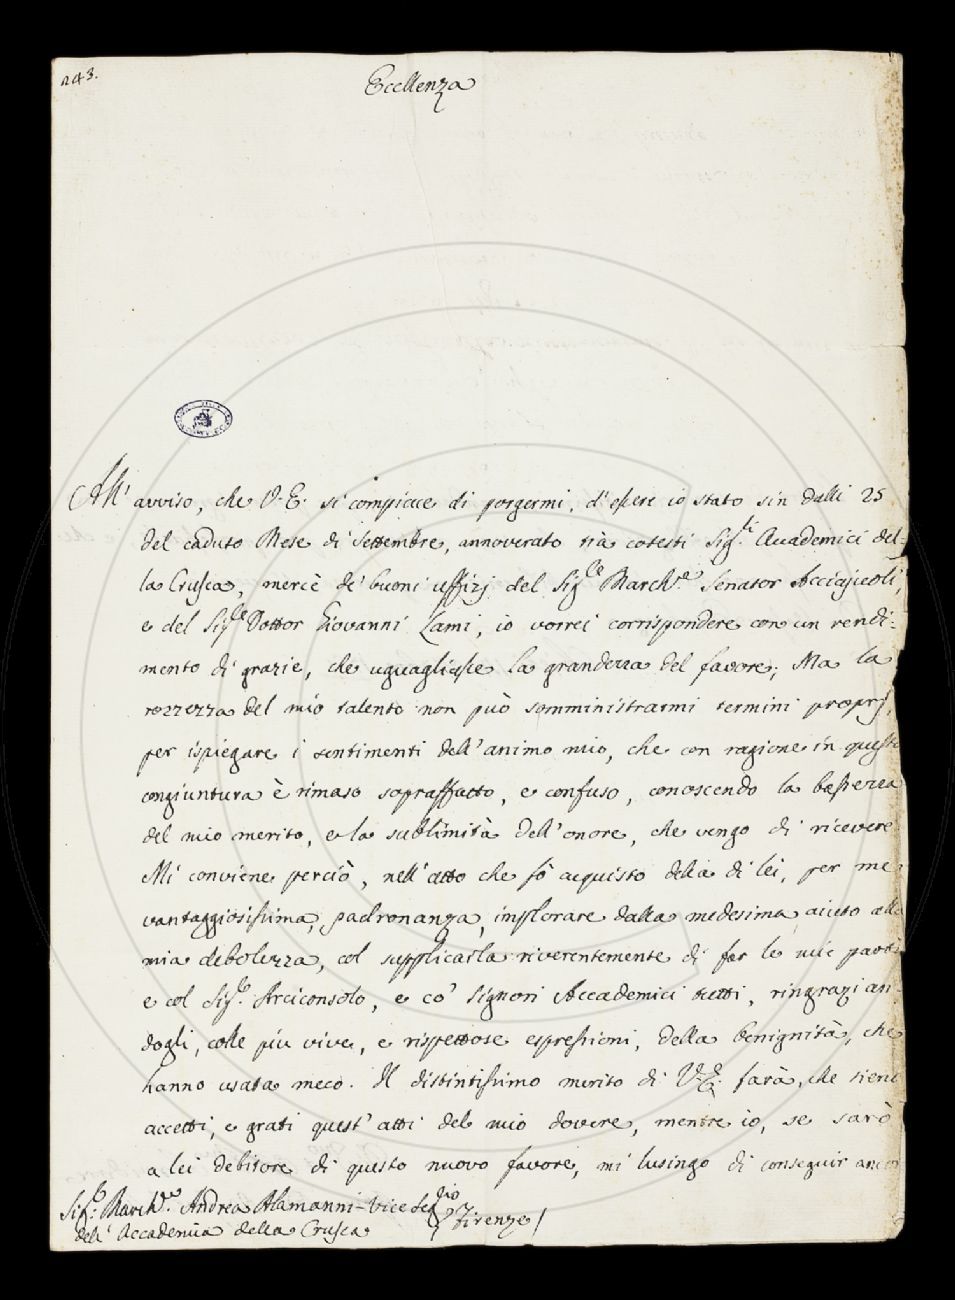 243.
Eccellenza
All' avviso, che V. E. si compiace di porgermi, d'essere io stato sin dalli 25
del caduto Mese di Settembre, annoverato trà cotesti Sig.ri Accademici del-
la Crusca, mercè de' buoni uffizj del Sig.re March.e Senator Acciajuoli,
e del Sig.re Dottor Giovanni Lami, io vorrei corrispondere con un rendi-
mento di grazie, che uguagliasse la grandezza del favore; Ma la
rozzezza del mio talento non può somministrarmi termini proprj,
per ispiegare i sentimenti dell'animo mio, che con ragione in questa
congiuntura è rimaso sopraffatto, e confuso, conoscendo la bassezza
del mio merito, e la sublimità dell'onore, che vengo di ricevere
Mi conviene perciò, nell'atto che fò acquisto della di lei, per me
vantaggiosissima, padronanza, implorare dalla medesima aiuto alla
mia debolezza, col supplicarla riverentemente di far le mie parti
e col Sig.e Arciconsolo, e co' Signori Accademici tutti, ringrazian
dogli, colle più vive, e rispettose espressioni, della benignità, che
hanno usata meco. Il distintissimo merito di V. E. farà, che sieno
accetti, e grati quest' atti del mio dovere, mentre io, se sarò
a lei debitore di questo nuovo favore, mi lusingo di conseguir ancor
Sig.e March.e Andrea Alamanni Vice Seg.rio
dell' Accademia della Crusca Firenze/